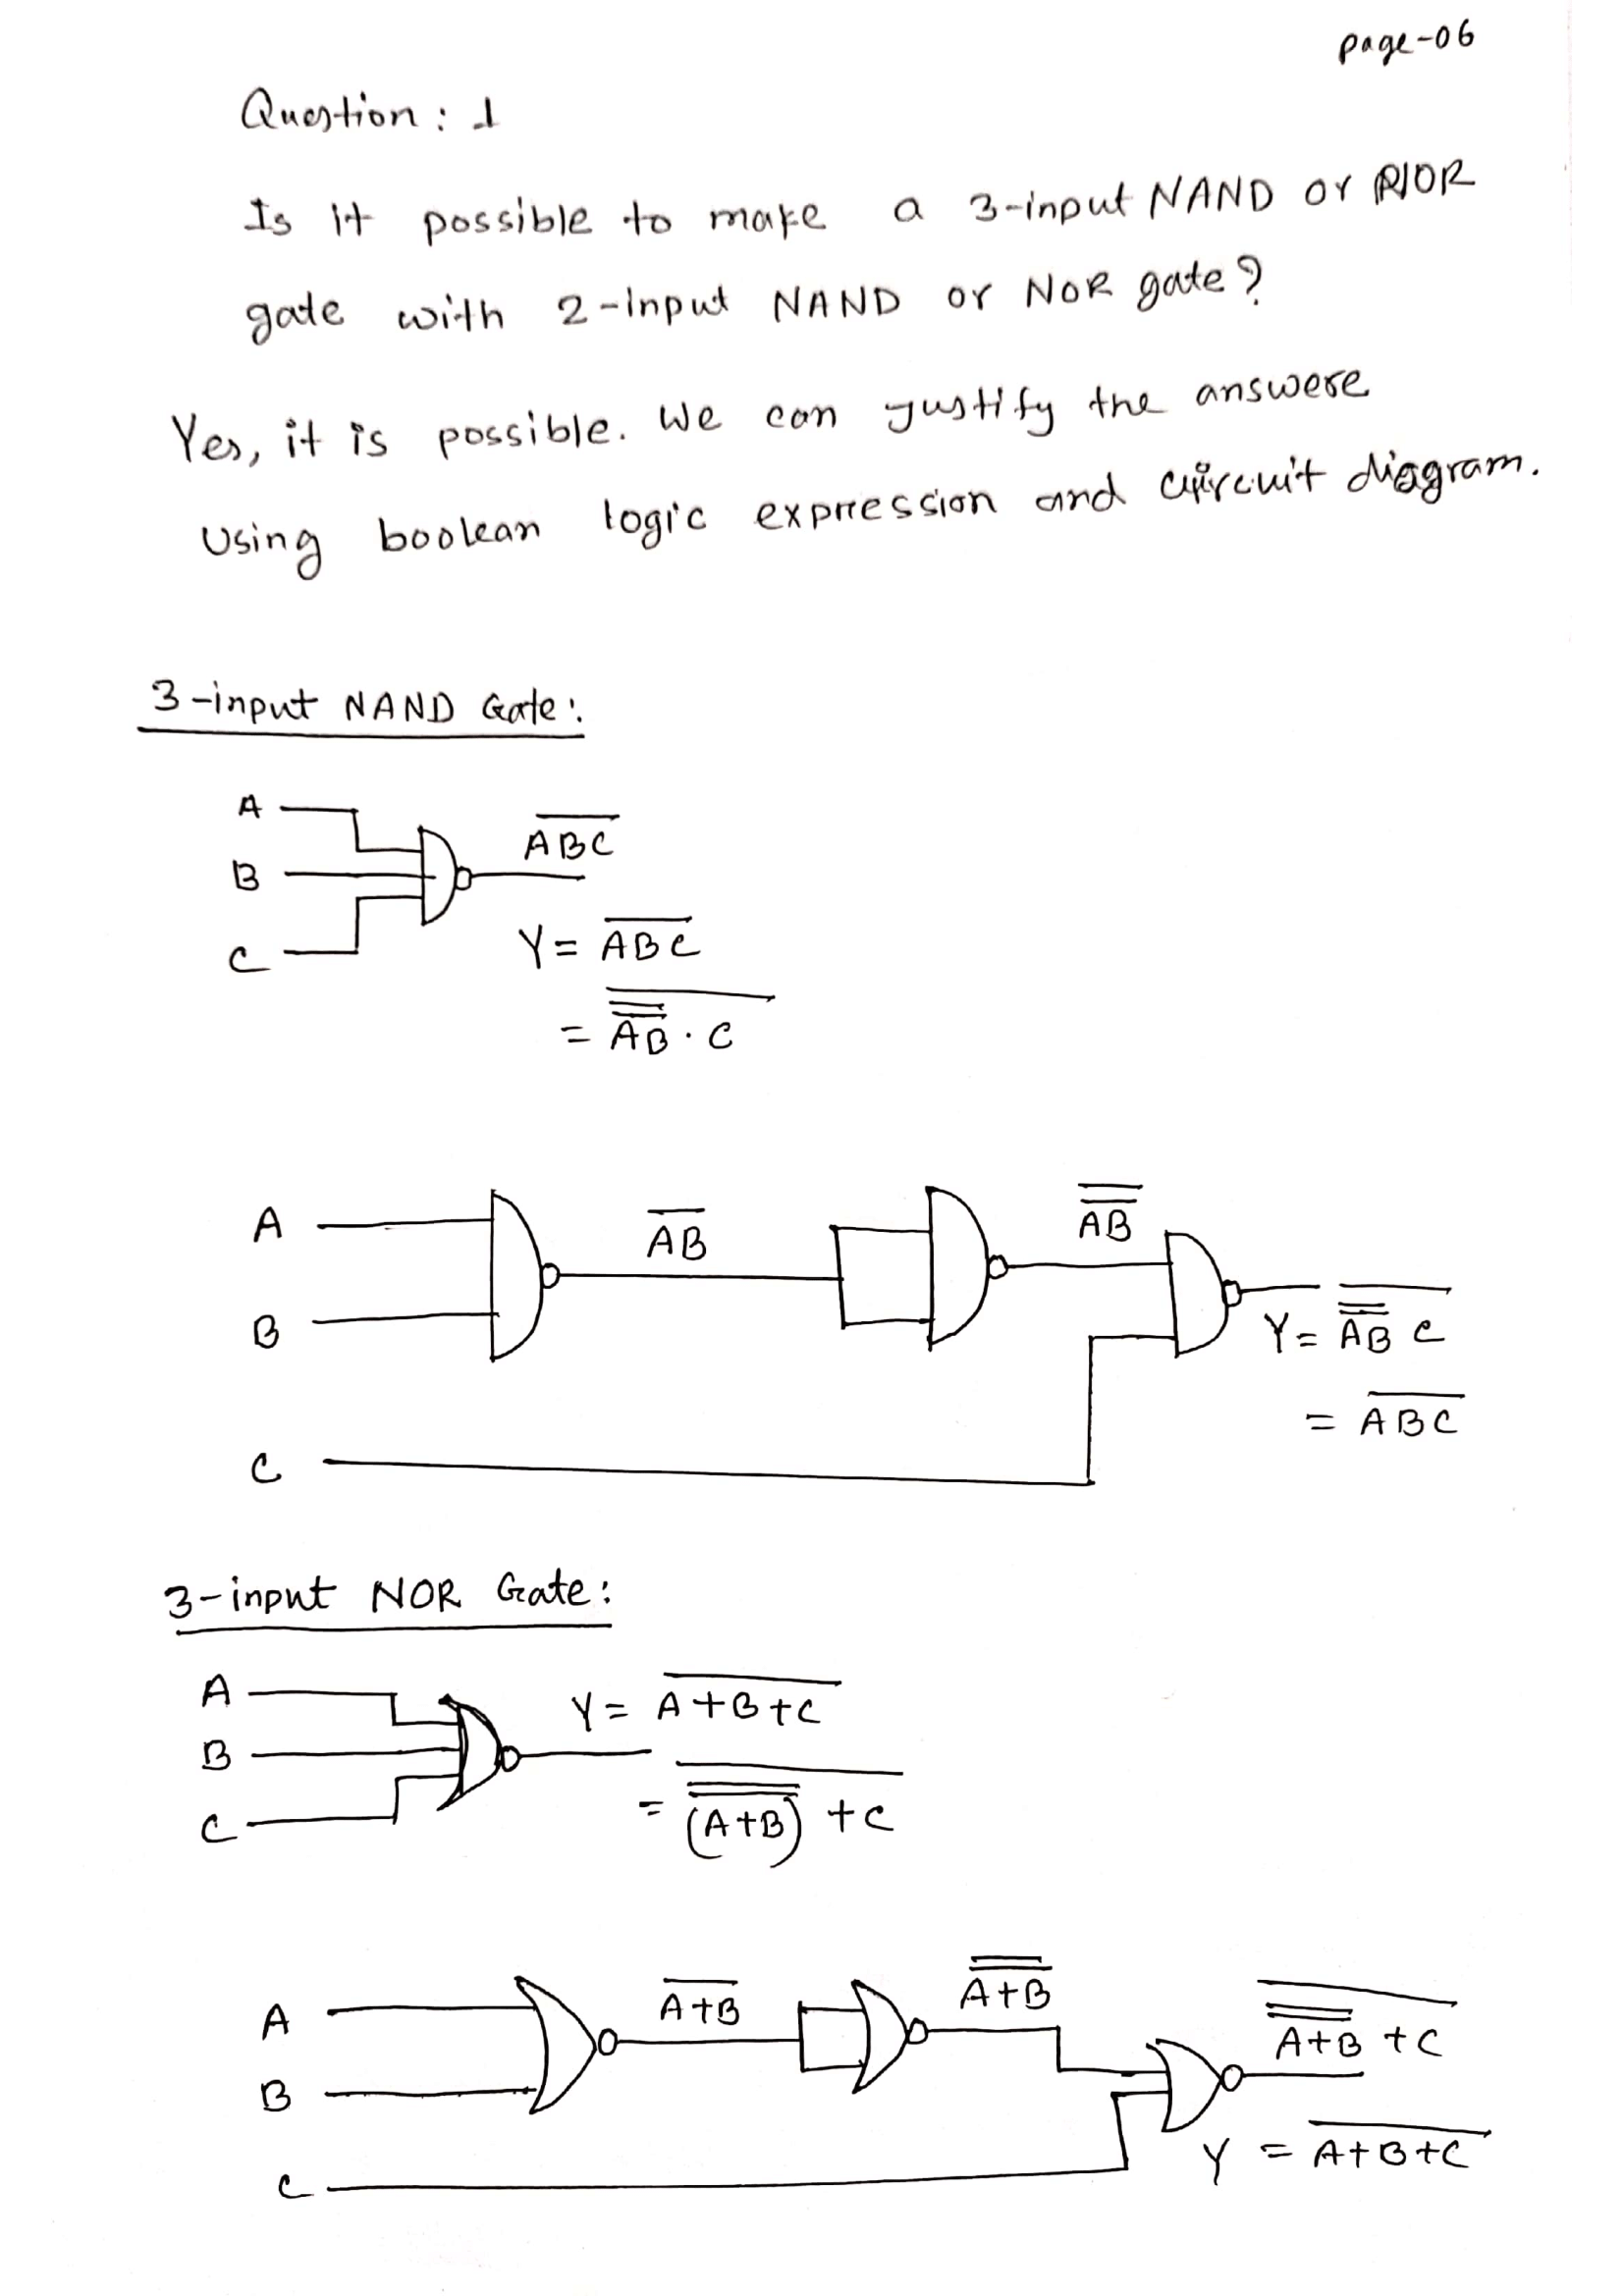 page-06
Question: 1
Is it possible to make a 3-input NAND or NOR
gate with 2-input NAND or NOR gate?
Yes, it is possible. We can justify the answere
Using boolean logic expression and circuit diagram.
3-input NAND Gate:
A
B
C
A̅B̅C̅
Y = A̅B̅C̅
= \overline{\overline{\overline{AB}} · C}
A
B
C
\overline{AB}
\overline{\overline{AB}}
Y = \overline{\overline{\overline{AB}} C}
= \overline{ABC}
3-input NOR Gate:
A
B
C
Y = \overline{A+B+C}
= \overline{\overline{\overline{(A+B)}} + C}
A
B
C
\overline{A+B}
\overline{\overline{A+B}}
\overline{\overline{\overline{A+B}} + C}
Y = \overline{A+B+C}